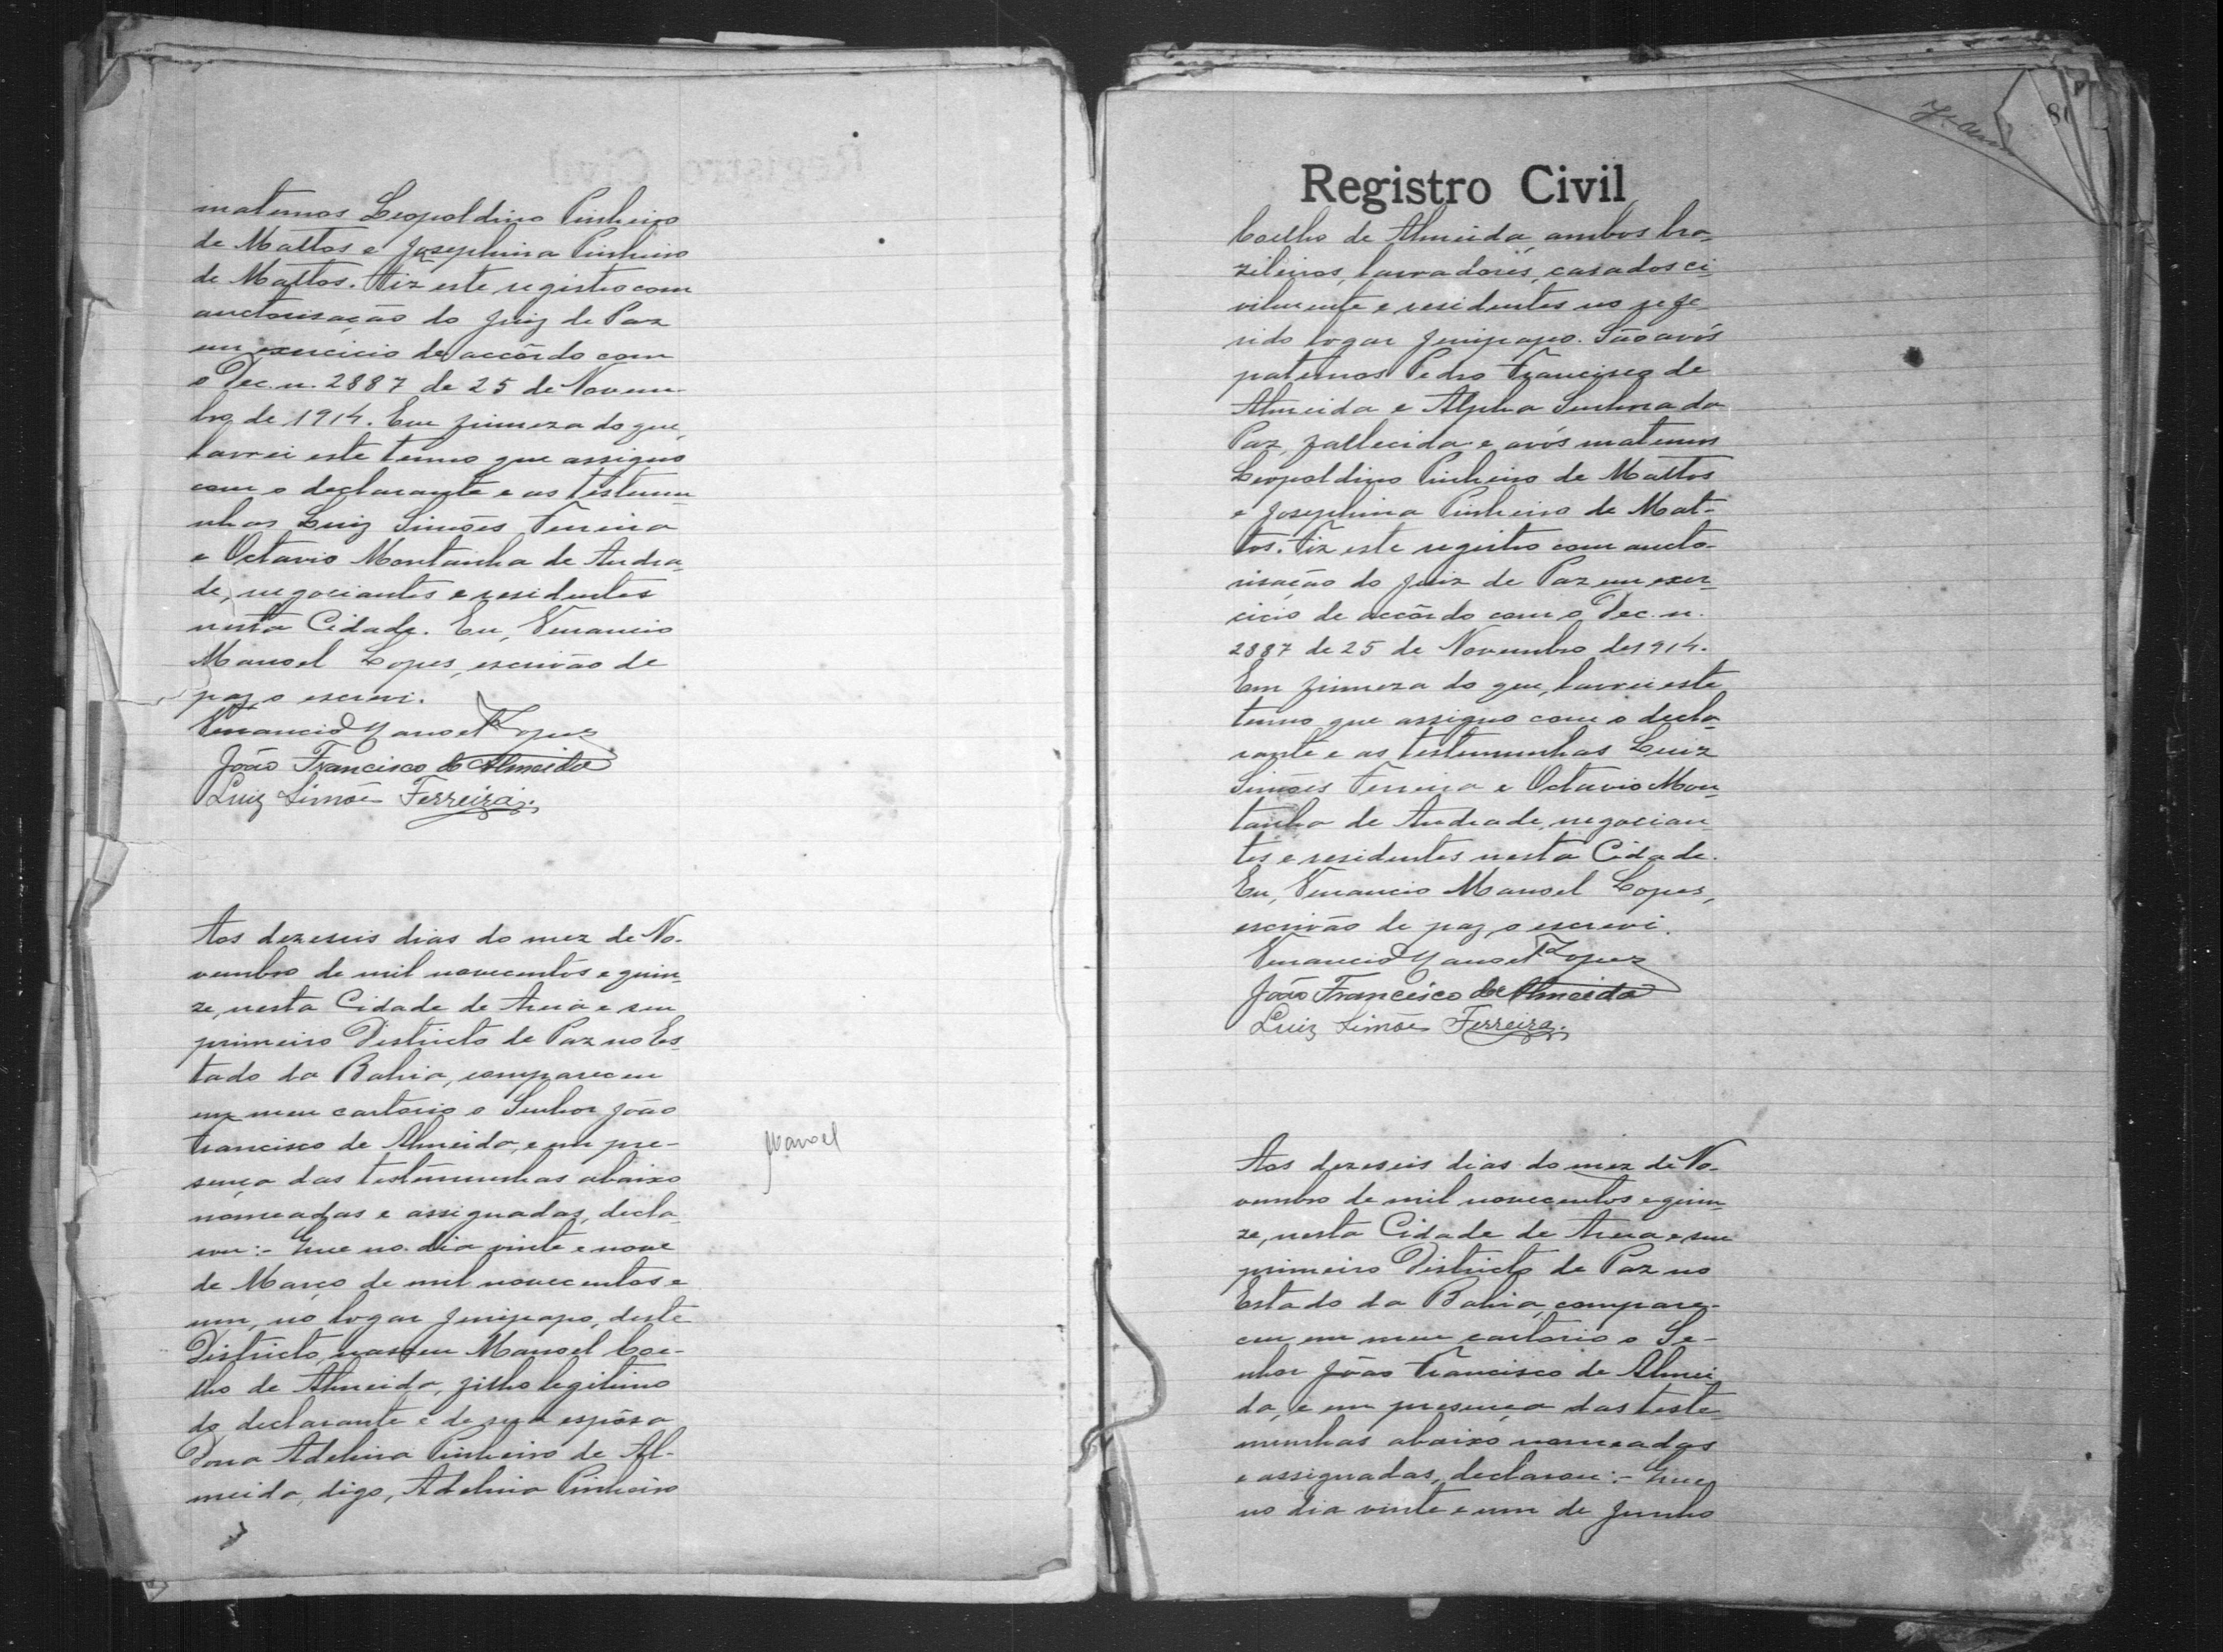 maternos Leopoldino Pinheiro
de Mattos e Josephina Pinheiro
de Mattos. Fiz este registro com
auctorisação do Juiz de Paz
em exercicio de accôrdo com
o Dec. n. 2887 de 25 de Novem-
bro de 1914. Em firmeza do que,
lavrei este termo que assigno
com o declarante e as testemu-
nhas Luiz Simões Ferreira
e Octavio Montanha de Andra-
de, negociantes e residentes
nesta Cidade. Eu, Venancio
Manoel Lopes, escrivão de
paz, o escrevi.
Venancio Manoel Lopes
João Francisco de Almeida
Luiz Simões Ferreira.
Aos dezeseis dias do mez de No-
vembro de mil novecentos e quin-
ze, nesta Cidade de Areia e seu
primeiro Districto de Paz no Es-
tado da Bahia, compareceu
em meu cartorio o Senhor João
Francisco de Almeida, e em pre-
sença das testemunhas abaixo
nomeadas e assignadas, decla-
rou:- Que no dia vinte e nove
de Março de mil novecentos e
um, no logar Jenipapo, deste
Districto, nasceu Manoel Coe-
lho de Almeida, filho legitimo
do declarante e de sua espôsa
Dona Adelina Pinheiro de Al-
meida, digo, Adelina Pinheiro
Manoel
81
Registro Civil
Coelho de Almeida, ambos bra-
zileiros, lavradores, casados ci-
vilmente e residentes no refe-
rido logar Jenipapo. São avós
paternos Pedro Francisco de
Almeida e Alpha Senhora da
Paz, fallecida e avós maternos
Leopoldino Pinheiro de Mattos
e Josephina Pinheiro de Mat-
tos. Fiz este registro com aucto-
risação do Juiz de Paz em exer-
cicio de accôrdo com o Dec. n.
2887 de 25 de Novembro de 1914.
Em firmeza do que, lavrei este
termo que assigno com o decla-
rante e as testemunhas Luiz
Simões Ferreira e Octavio Mon-
tanha de Andrade, negocian-
tes e residentes nesta Cidade.
Eu, Venancio Manoel Lopes,
escrivão de paz, o escrevi.
Venancio Manoel Lopes
João Francisco de Almeida
Luiz Simões Ferreira.
Aos dezeseis dias do mez de No-
vembro de mil novecentos e quin-
ze, nesta Cidade de Areia e seu
primeiro Districto de Paz no
Estado da Bahia, compare-
ceu em meu cartorio o Se-
nhor João Francisco de Almei-
da, e em presença das teste-
munhas abaixo nomeadas
e assignadas, declarou:- Que
no dia vinte e um de Junho